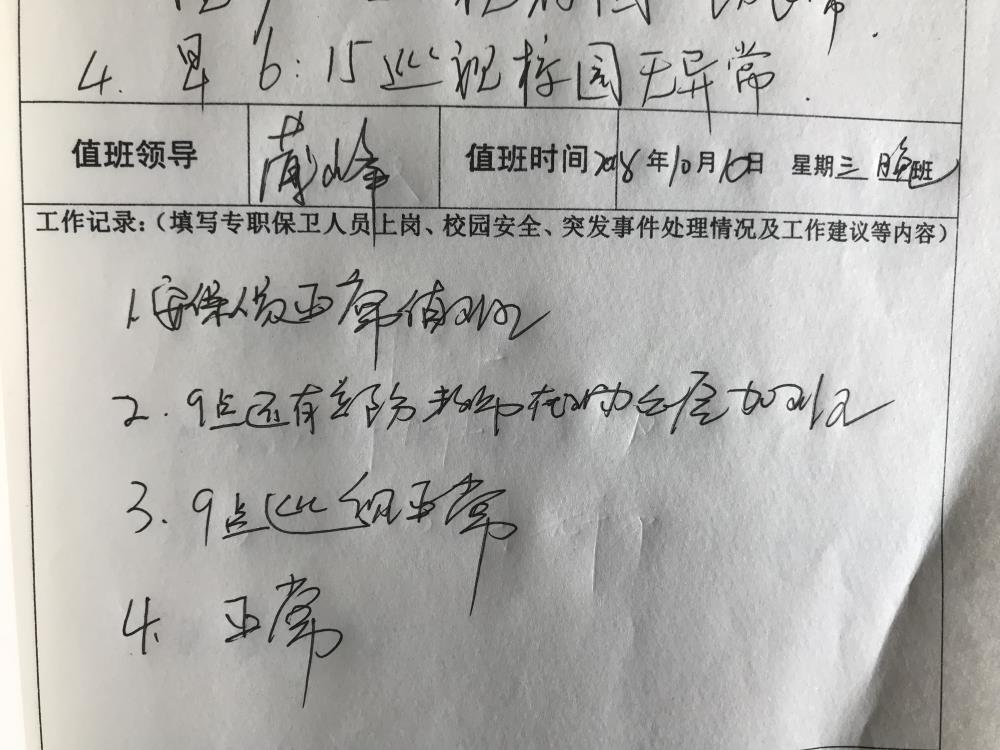 4. 早6:15巡视校园无异常.
值班领导 值班时间 2018年10月10日 星期三 晚班
工作记录:(填写专职保卫人员上岗、校园安全、突发事件处理情况及工作建议等内容)
1.安保人员正常值班
2.9点还有部分教师在办公室加班
3.9点巡视正常
4.正常